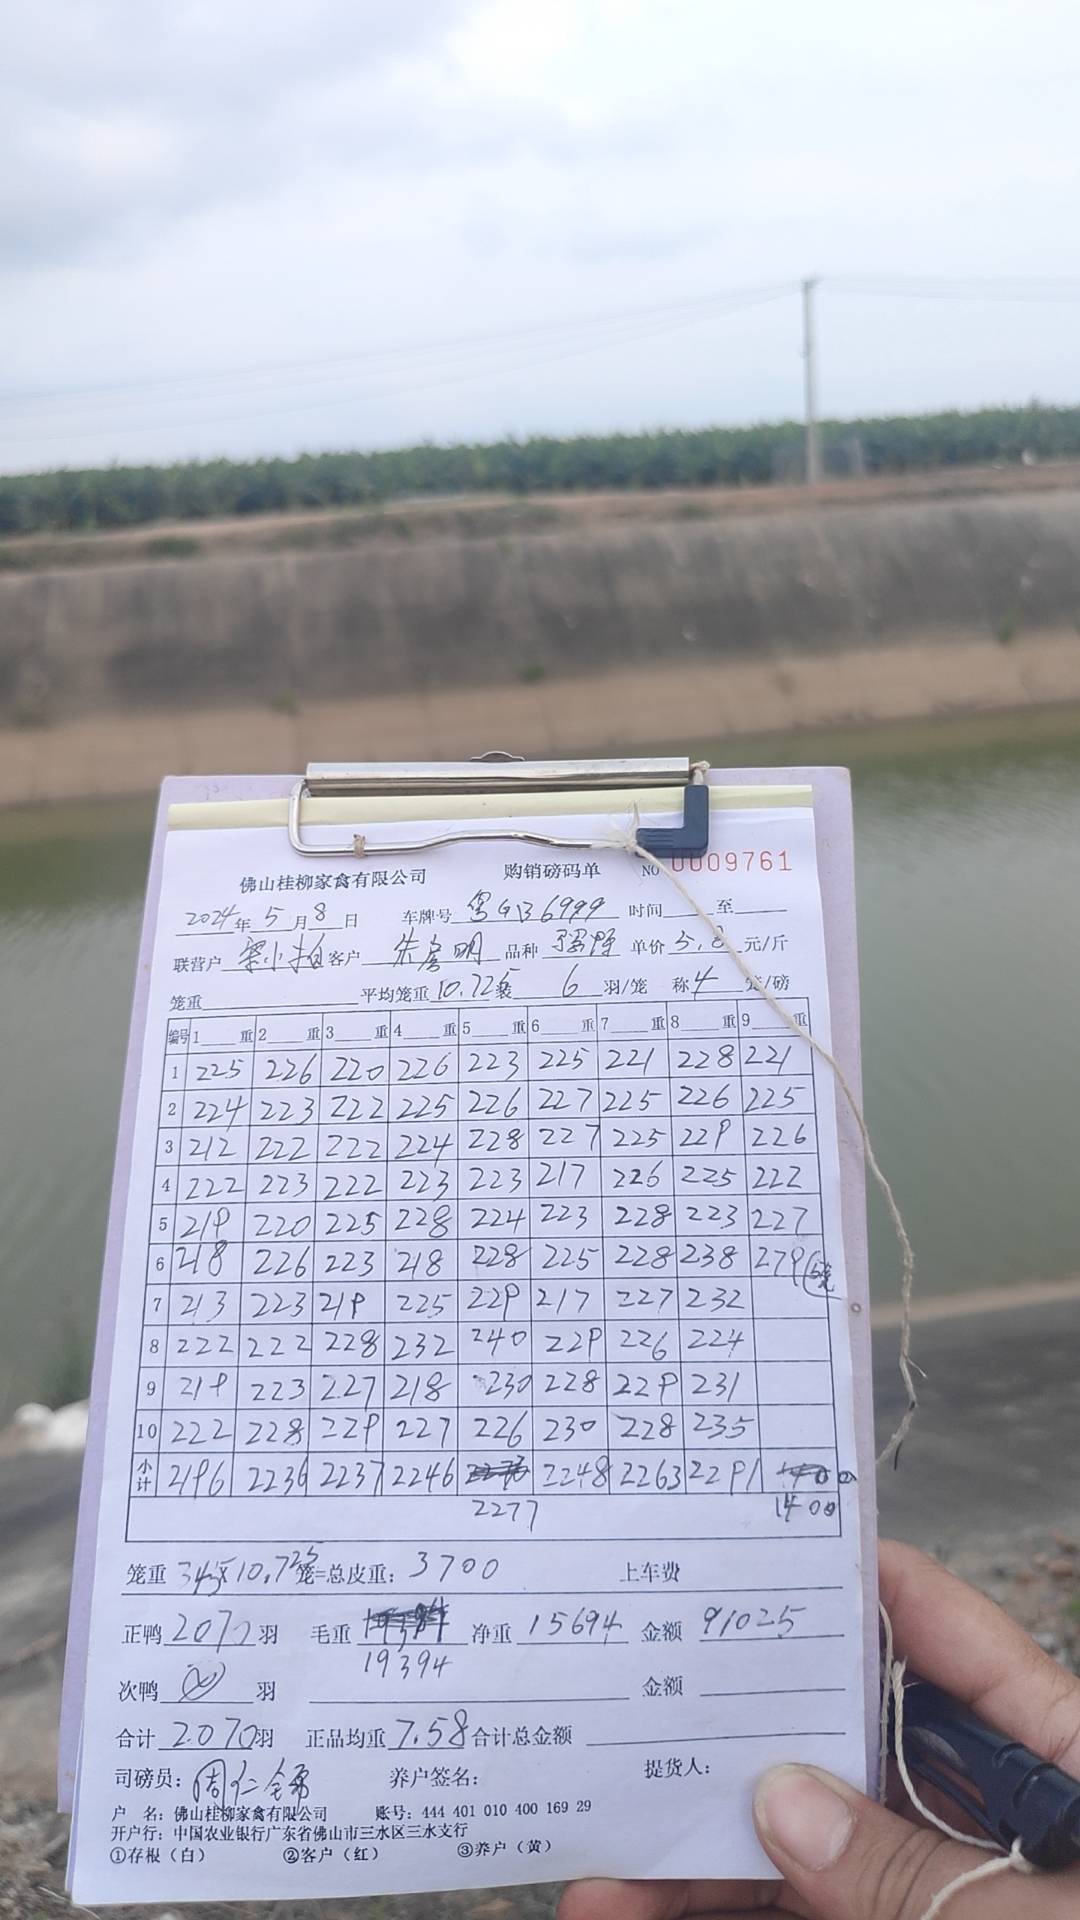 佛山桂柳家禽有限公司 购销磅码单 NO 0009761
2024年5月8日 车牌号 粤GB6999 时间 至
联营户 梁小柏 客户 朱 明 品种 单价 5.8 元/斤
笼重 平均笼重 10.72 装 6 羽/笼 称 4 笼/磅
编号 1 重 2 重 3 重 4 重 5 重 6 重 7 重 8 重 9 重
1 225 226 220 226 223 225 221 228 221
2 224 223 222 225 226 227 225 226 225
3 212 222 222 224 228 227 225 229 226
4 222 223 222 223 223 217 226 225 222
5 219 220 225 228 224 223 228 223 227
6 218 226 223 218 228 225 228 238 279
7 213 223 219 225 229 217 227 232
8 222 222 228 232 240 229 226 224
9 219 223 227 218 230 228 229 231
10 222 228 229 227 226 230 228 235
小计 2196 2236 2237 2246 2248 2263 2291
2277 1400
笼重 345×10.725 笼=总皮重: 3700 上车费
正鸭 2070 羽 毛重 净重 15694 金额 91025
19394
次鸭 羽 金额
合计 2070 羽 正品均重 7.58 合计总金额
司磅员: 周仁 养户签名: 提货人:
户 名: 佛山桂柳家禽有限公司 账号: 444 401 010 400 169 29
开户行: 中国农业银行广东省佛山市三水区三水支行
①存根（白） ②客户（红） ③养户（黄）